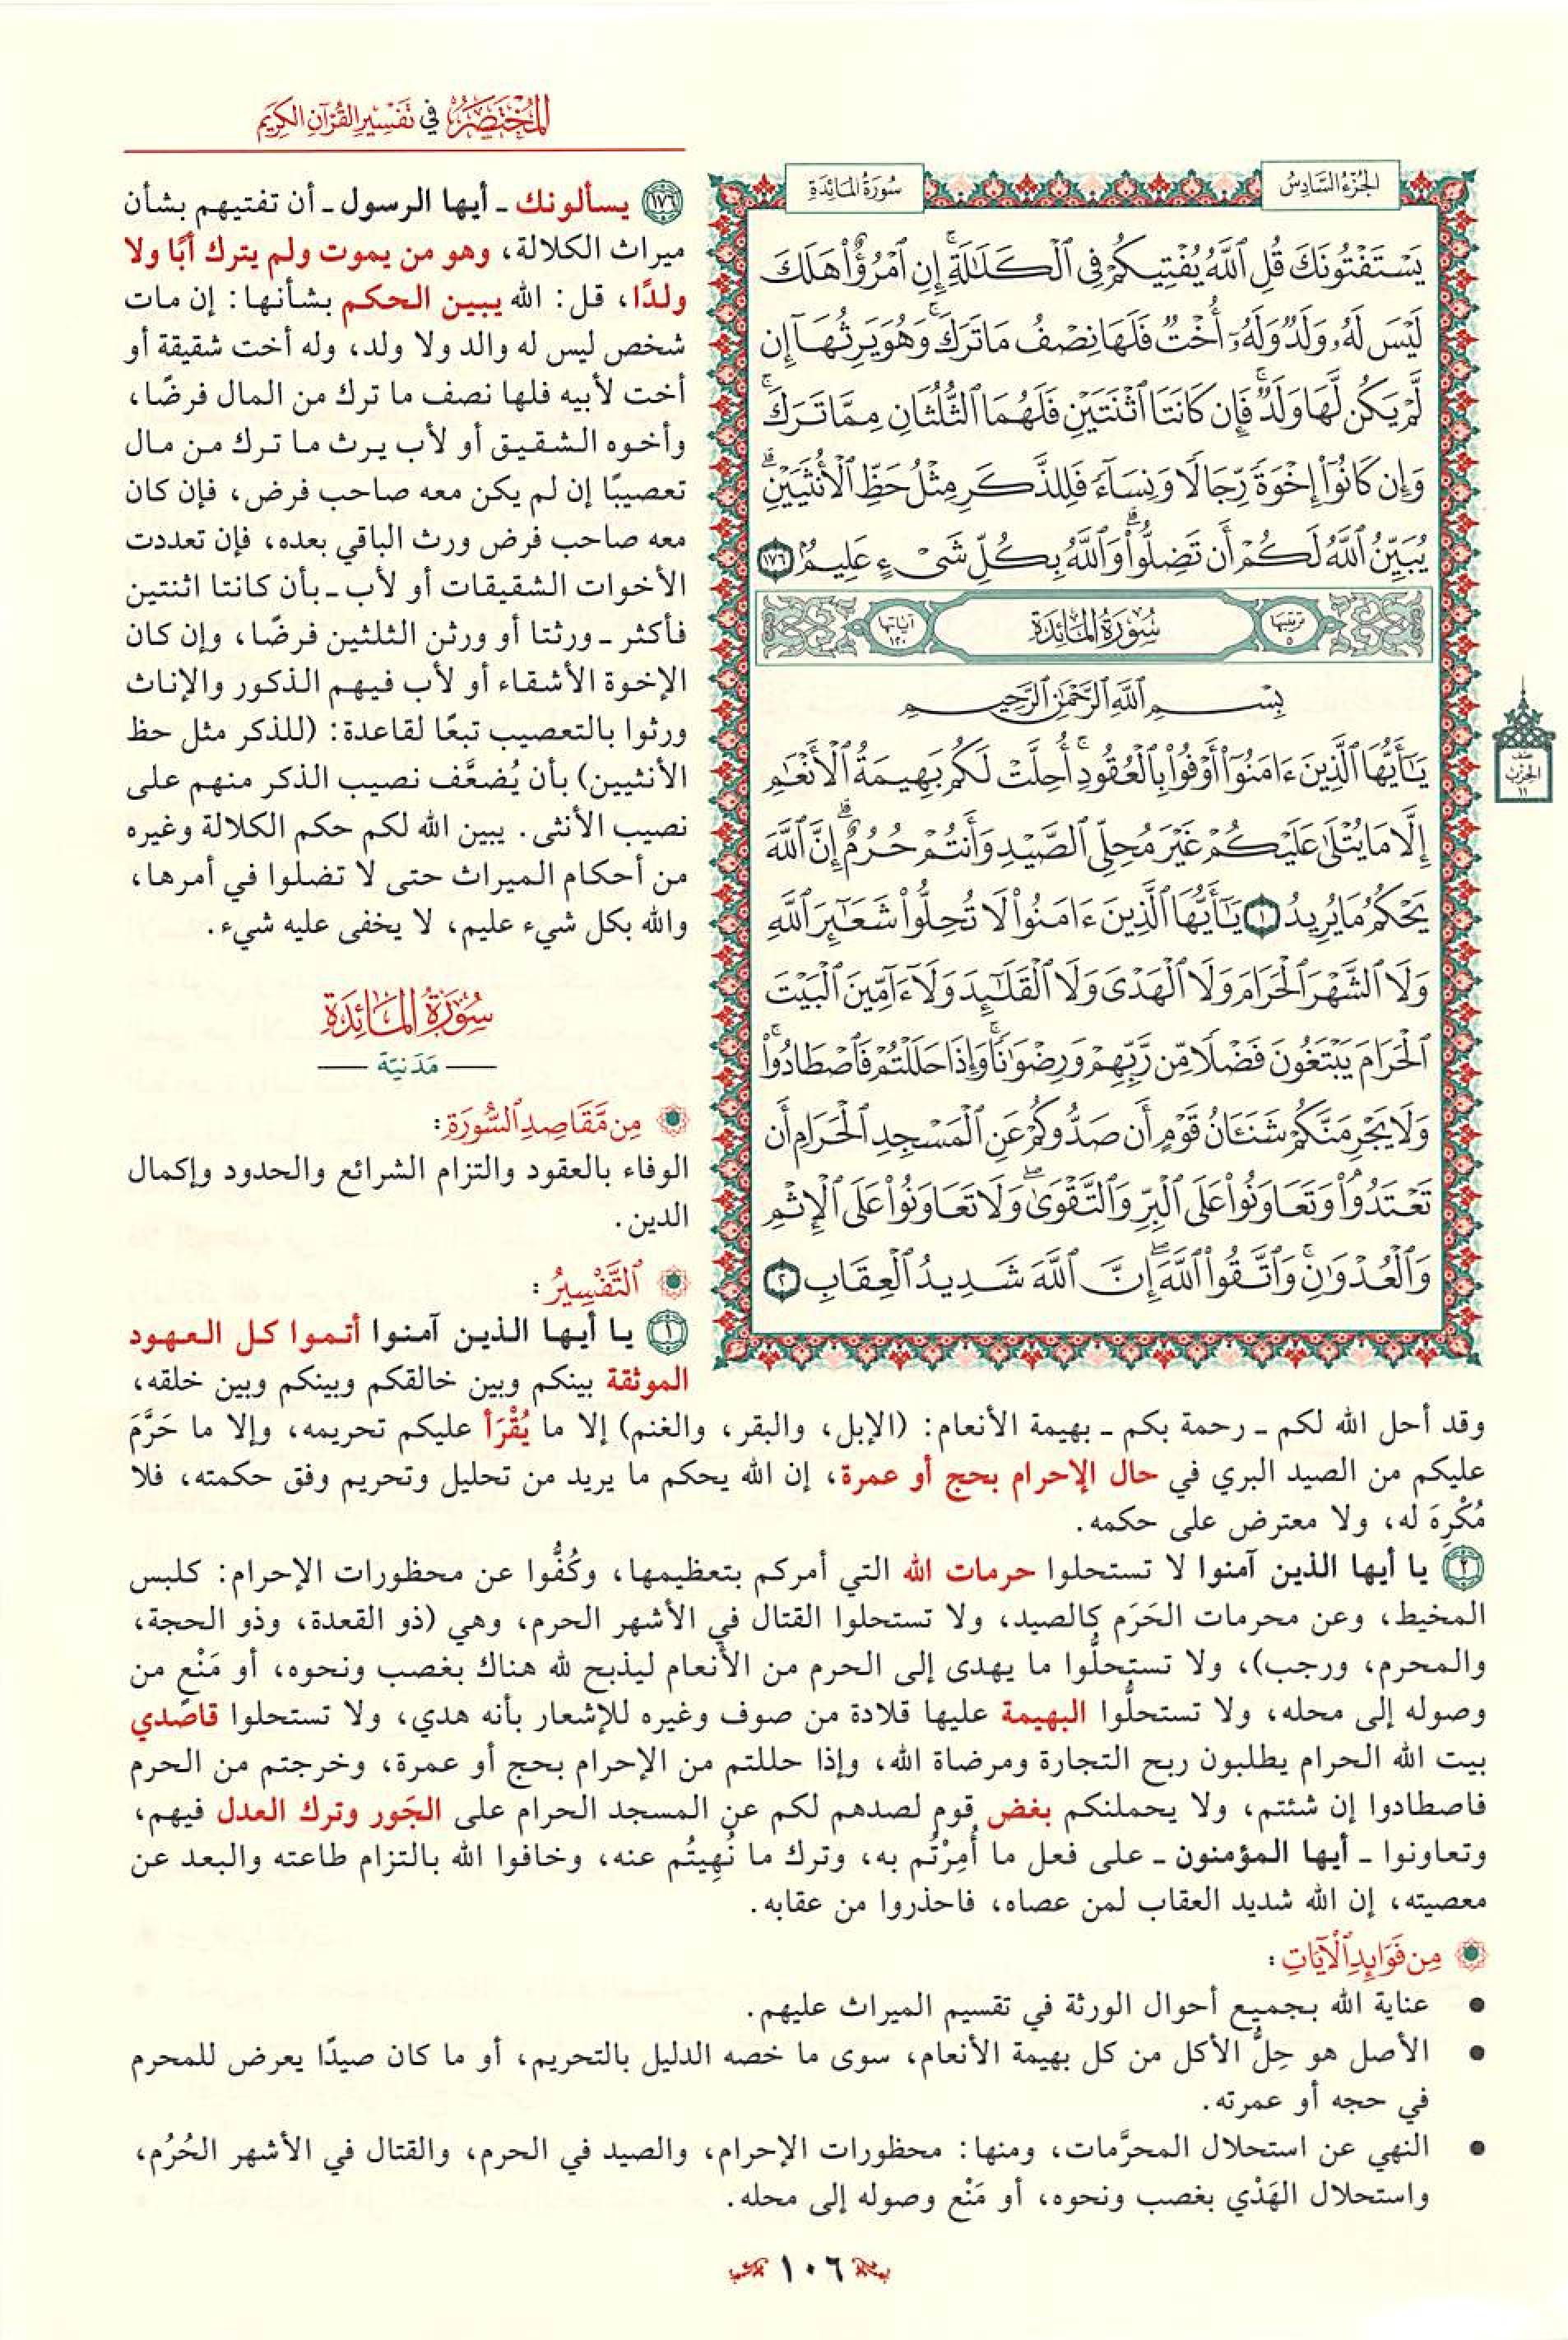 المختصر في تفسير القرآن الكريم
الجزء السادس
سورة المائدة
يَسْتَفْتُونَكَ قُلِ ٱللَّهُ يُفْتِيكُمْ فِي ٱلْكَلَٰلَةِۚ إِنِ ٱمْرُؤٌا۟ هَلَكَ
لَيْسَ لَهُۥ وَلَدٌ وَلَهُۥٓ أُخْتٌ فَلَهَا نِصْفُ مَا تَرَكَۚ وَهُوَ يَرِثُهَآ إِن
لَّمْ يَكُن لَّهَا وَلَدٌۚ فَإِن كَانَتَا ٱثْنَتَيْنِ فَلَهُمَا ٱلثُّلُثَانِ مِمَّا تَرَكَۚ
وَإِن كَانُوٓا۟ إِخْوَةً رِّجَالًا وَنِسَآءً فَلِلذَّكَرِ مِثْلُ حَظِّ ٱلْأُنثَيَيْنِۗ
يُبَيِّنُ ٱللَّهُ لَكُمْ أَن تَضِلُّوا۟ۗ وَٱللَّهُ بِكُلِّ شَىْءٍ عَلِيمٌۢ ١٧٦
ترتيبها ٥ سورة المائدة آياتها ١٢٠
بِسْمِ ٱللَّهِ ٱلرَّحْمَٰنِ ٱلرَّحِيمِ
يَٰٓأَيُّهَا ٱلَّذِينَ ءَامَنُوٓا۟ أَوْفُوا۟ بِٱلْعُقُودِۚ أُحِلَّتْ لَكُم بَهِيمَةُ ٱلْأَنْعَٰمِ
إِلَّا مَا يُتْلَىٰ عَلَيْكُمْ غَيْرَ مُحِلِّى ٱلصَّيْدِ وَأَنتُمْ حُرُمٌۗ إِنَّ ٱللَّهَ
يَحْكُمُ مَا يُرِيدُ ١ يَٰٓأَيُّهَا ٱلَّذِينَ ءَامَنُوا۟ لَا تُحِلُّوا۟ شَعَٰٓئِرَ ٱللَّهِ
وَلَا ٱلشَّهْرَ ٱلْحَرَامَ وَلَا ٱلْهَدْىَ وَلَا ٱلْقَلَٰٓئِدَ وَلَآ ءَآمِّينَ ٱلْبَيْتَ
ٱلْحَرَامَ يَبْتَغُونَ فَضْلًا مِّن رَّبِّهِمْ وَرِضْوَٰنًاۚ وَإِذَا حَلَلْتُمْ فَٱصْطَادُوا۟ۚ
وَلَا يَجْرِمَنَّكُمْ شَنَـَٔانُ قَوْمٍ أَن صَدُّوكُمْ عَنِ ٱلْمَسْجِدِ ٱلْحَرَامِ أَن
تَعْتَدُوا۟ۘ وَتَعَاوَنُوا۟ عَلَى ٱلْبِرِّ وَٱلتَّقْوَىٰۖ وَلَا تَعَاوَنُوا۟ عَلَى ٱلْإِثْمِ
وَٱلْعُدْوَٰنِۚ وَٱتَّقُوا۟ ٱللَّهَۖ إِنَّ ٱللَّهَ شَدِيدُ ٱلْعِقَابِ ٢
نصف
الحزب
١١
١٧٦ يسألونك ـ أيها الرسول ـ أن تفتيهم بشأن
ميراث الكلالة، وهو من يموت ولم يترك أبًا ولا
ولدًا، قل: الله يبين الحكم بشأنها: إن مات
شخص ليس له والد ولا ولد، وله أخت شقيقة أو
أخت لأبيه فلها نصف ما ترك من المال فرضًا،
وأخوه الشقيق أو لأب يرث ما ترك من مال
تعصيبًا إن لم يكن معه صاحب فرض، فإن كان
معه صاحب فرض ورث الباقي بعده، فإن تعددت
الأخوات الشقيقات أو لأب ـ بأن كانتا اثنتين
فأكثر ـ ورثتا أو ورثن الثلثين فرضًا، وإن كان
الإخوة الأشقاء أو لأب فيهم الذكور والإناث
ورثوا بالتعصيب تبعًا لقاعدة: (للذكر مثل حظ
الأنثيين) بأن يُضعَّف نصيب الذكر منهم على
نصيب الأنثى. يبين الله لكم حكم الكلالة وغيره
من أحكام الميراث حتى لا تضلوا في أمرها،
والله بكل شيء عليم، لا يخفى عليه شيء.
سورة المائدة
مدنية
من مقاصد السورة:
الوفاء بالعقود والتزام الشرائع والحدود وإكمال
الدين.
التفسير:
١ يا أيها الذين آمنوا أتموا كل العهود
الموثقة بينكم وبين خالقكم وبينكم وبين خلقه،
وقد أحل الله لكم ـ رحمة بكم ـ بهيمة الأنعام: (الإبل، والبقر، والغنم) إلا ما يُقْرَأ عليكم تحريمه، وإلا ما حَرَّمَ
عليكم من الصيد البري في حال الإحرام بحج أو عمرة، إن الله يحكم ما يريد من تحليل وتحريم وفق حكمته، فلا
مُكْرِهَ له، ولا معترض على حكمه.
٢ يا أيها الذين آمنوا لا تستحلوا حرمات الله التي أمركم بتعظيمها، وكُفُّوا عن محظورات الإحرام: كلبس
المخيط، وعن محرمات الحَرَم كالصيد، ولا تستحلوا القتال في الأشهر الحرم، وهي (ذو القعدة، وذو الحجة،
والمحرم، ورجب)، ولا تستحلُّوا ما يهدى إلى الحرم من الأنعام ليذبح لله هناك بغصب ونحوه، أو مَنْعٍ من
وصوله إلى محله، ولا تستحلُّوا البهيمة عليها قلادة من صوف وغيره للإشعار بأنه هدي، ولا تستحلوا قاصدي
بيت الله الحرام يطلبون ربح التجارة ومرضاة الله، وإذا حللتم من الإحرام بحج أو عمرة، وخرجتم من الحرم
فاصطادوا إن شئتم، ولا يحملنكم بغض قوم لصدهم لكم عن المسجد الحرام على الجَور وترك العدل فيهم،
وتعاونوا ـ أيها المؤمنون ـ على فعل ما أُمِرْتُم به، وترك ما نُهِيتُم عنه، وخافوا الله بالتزام طاعته والبعد عن
معصيته، إن الله شديد العقاب لمن عصاه، فاحذروا من عقابه.
من فوائد الآيات:
• عناية الله بجميع أحوال الورثة في تقسيم الميراث عليهم.
• الأصل هو حِلُّ الأكل من كل بهيمة الأنعام، سوى ما خصه الدليل بالتحريم، أو ما كان صيدًا يعرض للمحرم
في حجه أو عمرته.
• النهي عن استحلال المحرَّمات، ومنها: محظورات الإحرام، والصيد في الحرم، والقتال في الأشهر الحُرُم،
واستحلال الهَدْي بغصب ونحوه، أو مَنْع وصوله إلى محله.
١٠٦